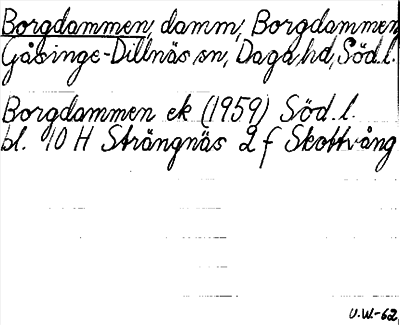 Borgdammen, damm, Borgdammen,
Gåsinge-Dillnäs sn, Daga hd, Söd.l.
Borgdammen ek (1959) Söd.l.
bl. 10 H Strängnäs 2 f Skottvång
U.W.-62